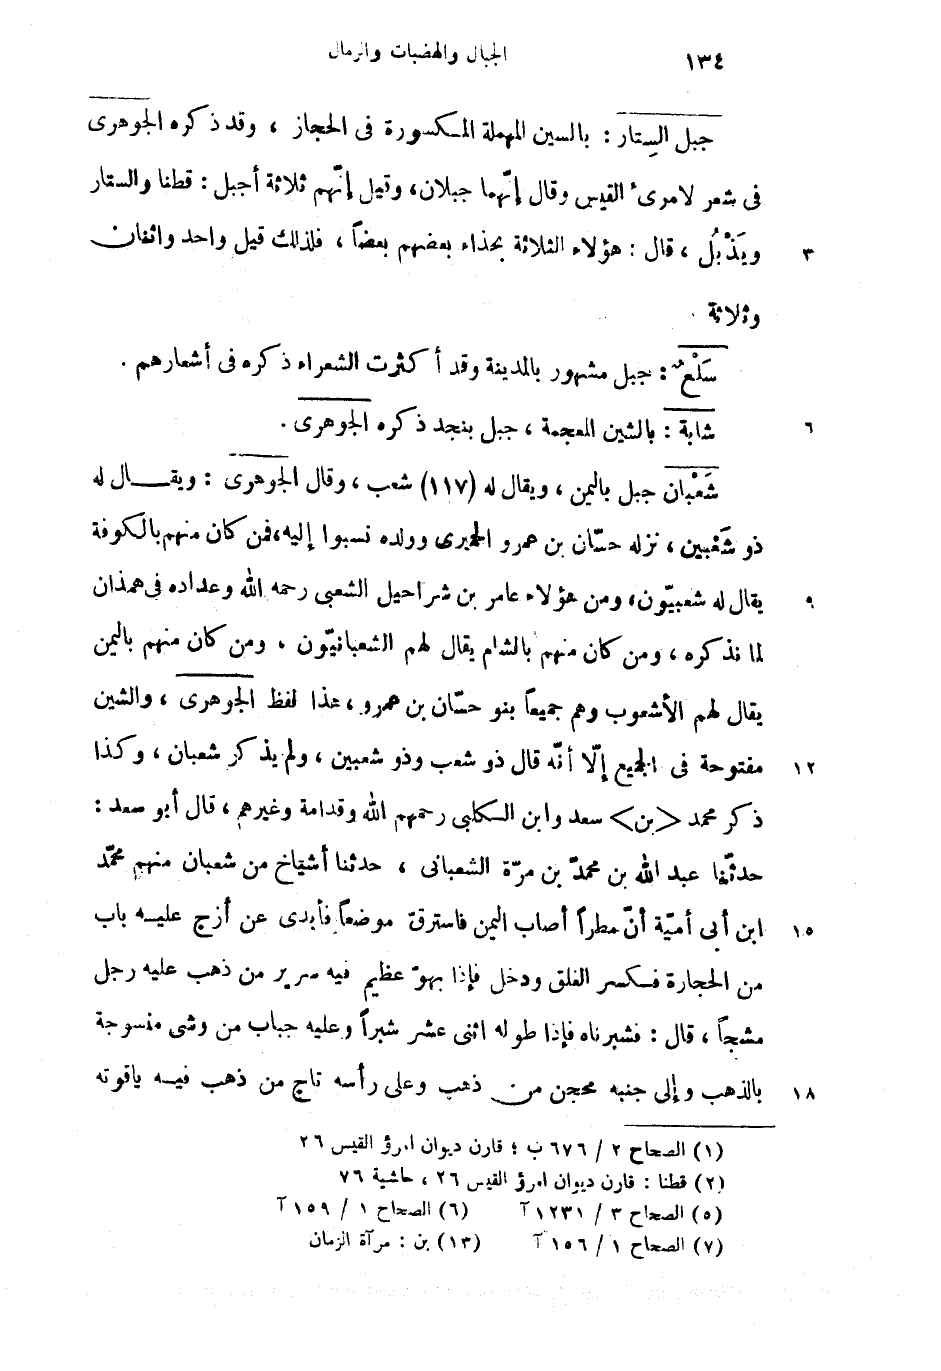 ١٣٤ الجبال والهضبات والرمال
جبل السِتار : بالسين المهملة المكسورة فى الحجاز ، وقد ذكره الجوهرى
فى شعر لامرىء القيس وقال إنّهما جبلان، وقيل إنّهم ثلاثة أجبل : قطنا والستار
٣ ويَذْبُل ، قال : هؤلاء الثلاثة بحذاء بعضهم بعضاً ، فلذلك قيل واحد واثنان
وثلاثة .
سَلْعٌ : جبل مشهور بالمدينة وقد أكثرت الشعراء ذكره فى أشعارهم .
٦ شابة : بالشين المعجمة ، جبل بنجد ذكره الجوهرى .
شَعْبان جبل باليمن ، ويقال له (١١٧) شعب ، وقال الجوهرى : ويقـــال له
ذو شَعْبين ، نزله حسّان بن عمرو الحميرى وولده نسبوا إليه، فمن كان منهم بالكوفة
٩ يقال له شعبيّون، ومن هؤلاء عامر بن شراحيل الشعبى رحمه الله وعداده فى همذان
لما نذكره ، ومن كان منهم بالشام يقال لهم الشعبانيّون ، ومن كان منهم باليمن
يقال لهم الأشعوب وهم جميعاً بنو حسّان بن عمرو ، هذا لفظ الجوهرى ، والشين
١٢ مفتوحة فى الجميع إلّا أنّه قال ذو شعب وذو شعبين ، ولم يذكر شعبان ، وكذا
ذكر محمد <بن> سعد وابن الكلبى رحمهم الله وقدامة وغيرهم ، قال أبو سعد :
حدثّنا عبد الله بن محمدّ بن مرّة الشعبانى ، حدثنا أشياخ من شعبان منهم محمّد
١٥ ابن أبى أميّة أنّ مطراً أصاب اليمن فاسترق موضعاً فأبدى عن أزج عليـه باب
من الحجارة فكسر الغلق ودخل فإذا بهو عظيم فيه سرير من ذهب عليه رجل
مشجاً ، قال : فشبرناه فإذا طوله اثنى عشر شبراً وعليه جباب من وشى منسوجة
١٨ بالذهب وإلى جنبه محجن من ذهب وعلى رأسه تاج من ذهب فيـه ياقوته
(١) الصحاح ٢ / ٦٧٦ ب ؛ قارن ديوان امرؤ القيس ٢٦
(٢) قطنا : قارن ديوان امرؤ القيس ٢٦ ، حاشية ٧٦
(٥) الصحاح ٣ / ١٢٣١ آ (٦) الصحاح ١ / ١٥٩ آ
(٧) الصحاح ١ / ١٥٦ آ (١٣) بن : مرآة الزمان